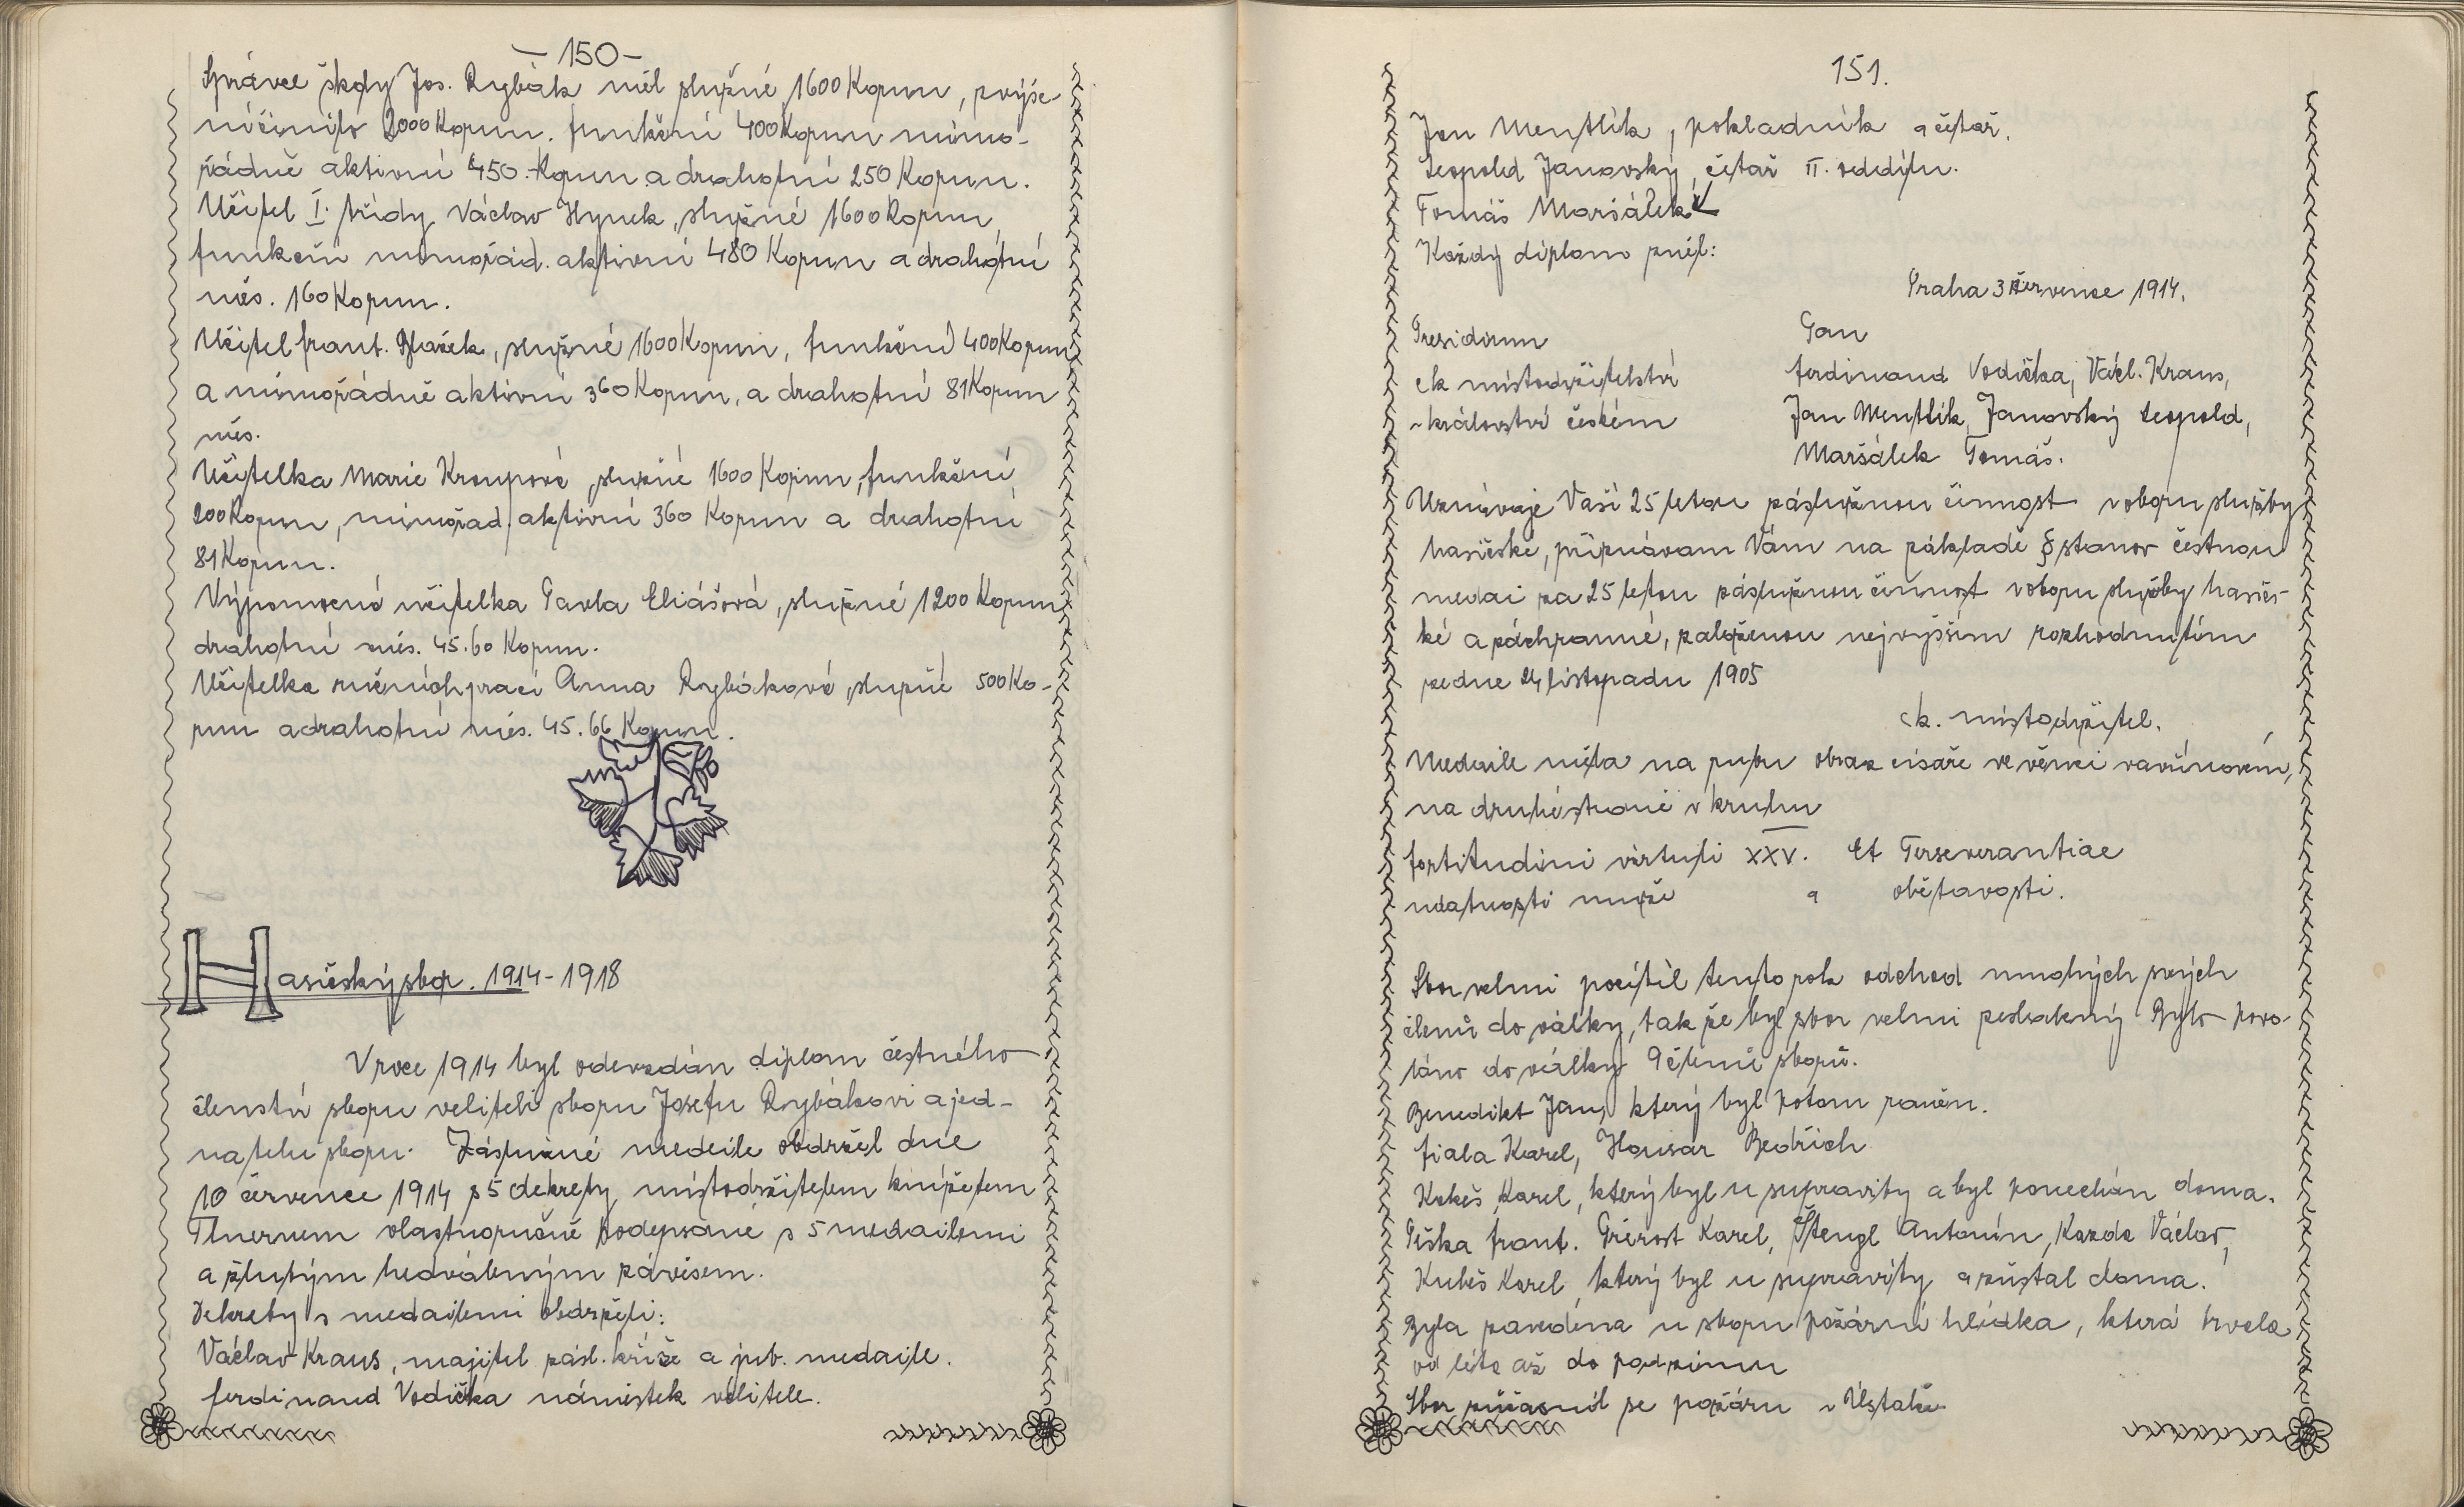 - 150 -
Správce školy Jos. Rybák měl služné 1600 Korun, zvýše-
ní činilo 2000 Korun. funkční 400 Korun mimo-
řádně aktivní 450.- Korun a drahotní 250 Korun.
Učitel I. třídy Václav Hynek, služné 1600 Korun,
funkční mimořád. aktivní 480 Korun a drahotní
měs. 160 Korun.
Učitel frant. Blažek, služné 1600 Korun, funkční 400 Korun
a mimořádně aktivní 360 Korun, a drahotní 81 Korun
měs.
Učitelka Marie Kroupová, služné 1600 Korun, funkční
200 Korun, mimořád. aktivní 360 Korun a drahotní
81 Korun.
Výpomocná učitelka Pavla Eliášová, služné 1200 Korun
drahotní měs. 45.60 Korun.
Učitelka ručních prací Anna Rybáková, služné 500 Ko-
run a drahotní měs. 45.66 Korun.
Hasičský sbor. 1914-1918
V roce 1914 byl odevzdán diplom čestného
členství sboru veliteli sboru Josefu Rybákovi a jed-
nateli sboru. Záslužné medaile obdržel dne
10 července 1914 s 5 dekrety, místodržitelem knížetem
Thunem vlastnoručně podepsané, s 5 medailemi
a žlutým hedvábným závěsem.
Dekrety s medailemi obdrželi:
Václav Kraus, majitel zásl. kříže a jub. medaile.
ferdinand Vodička náměstek velitele.
151.
Jan Mentlík, pokladník a četař.
Leopold Janovský, četař II. oddílu.
Tomáš Maršálek
Každý diplom zněl:
Praha 3 července 1914.
Presidium
ck místodržitelství
v království českém
Pan
ferdinand Vodička, Václ. Kraus,
Jan Mentlík, Janovský Leopold,
Maršálek Tomáš.
Uznávaje Vaši 25 letou záslužnou činnost v oboru služby
hasičské, přiznávám Vám na základě § stanov čestnou
medai za 25 letou záslužnou činnost v oboru služby hasičs-
ké a záchranné, založenou nejvyšším rozhodnutím
ze dne 24 listopadu 1905
ck. místodržitel.
Medaile měla na rubu obraz císaře ve věnci vavřínovém,
na druhé straně v kruhu
fortitudini virtuti XXV. Et Perseverantiae
udatnosti muže a obětavosti.
Sbor velmi pocítil tento rok odchod mnohých svých
členů do války, tak že byl sbor velmi zeslabený Bylo povo-
láno do války 9 členů sboru.
Benedikt Jan, který byl potom raněn.
fiala Karel, Housar Bedřich
Kakeš Karel, který byl u supravity a byl ponechán doma.
Piška frant. Prérost Karel, Štengl Antonín, Kazda Václav,
Kubeš Karel, který byl u supravity a zůstal doma.
Byla zavedena u sboru požární hlídka, která trvala
od léta až do podzimu
Sbor zúčasnil se požáru v Ústalě